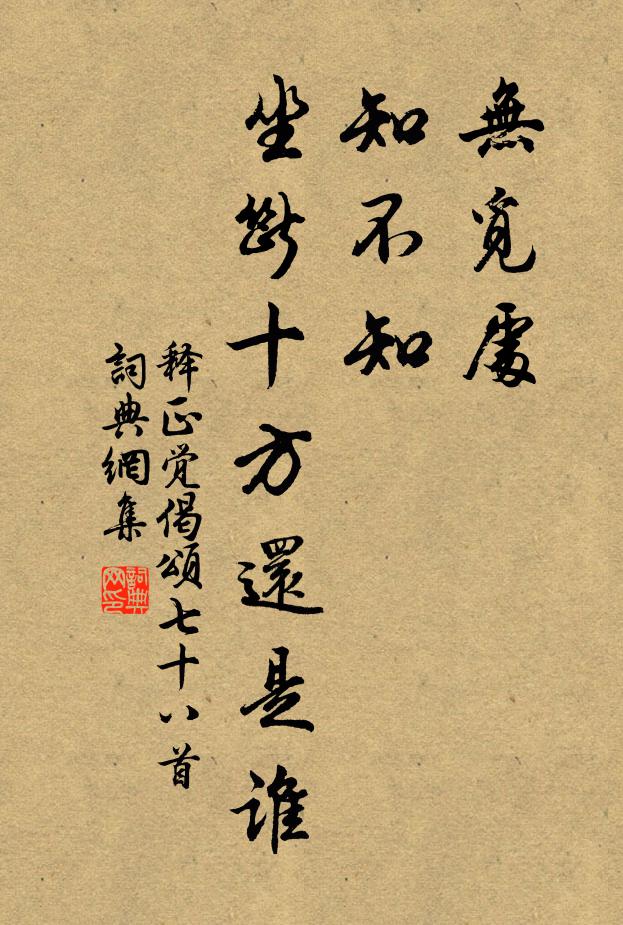 無覓處
知不知
坐斷十方還是誰
释正觉偈頌七十八首
詞典網集
詞典网印